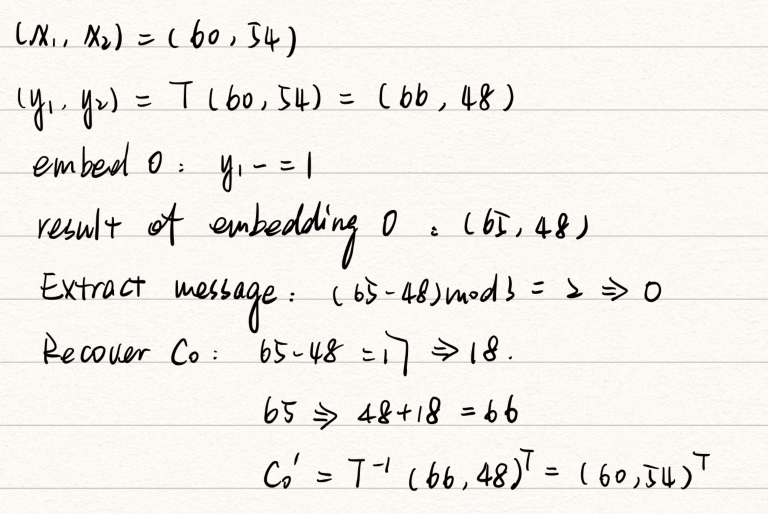 (x₁, x₂) = (60, 54)
(y₁, y₂) = T(60, 54) = (66, 48)
embed 0: y₁ -= 1
result of embedding 0: (65, 48)
Extract message: (65-48)mod3 = 2 ⇒ 0
Recover C₀: 65-48 = 17 ⇒ 18.
65 ⇒ 48+18 = 66
C₀' = T⁻¹ (66, 48)ᵀ = (60, 54)ᵀ